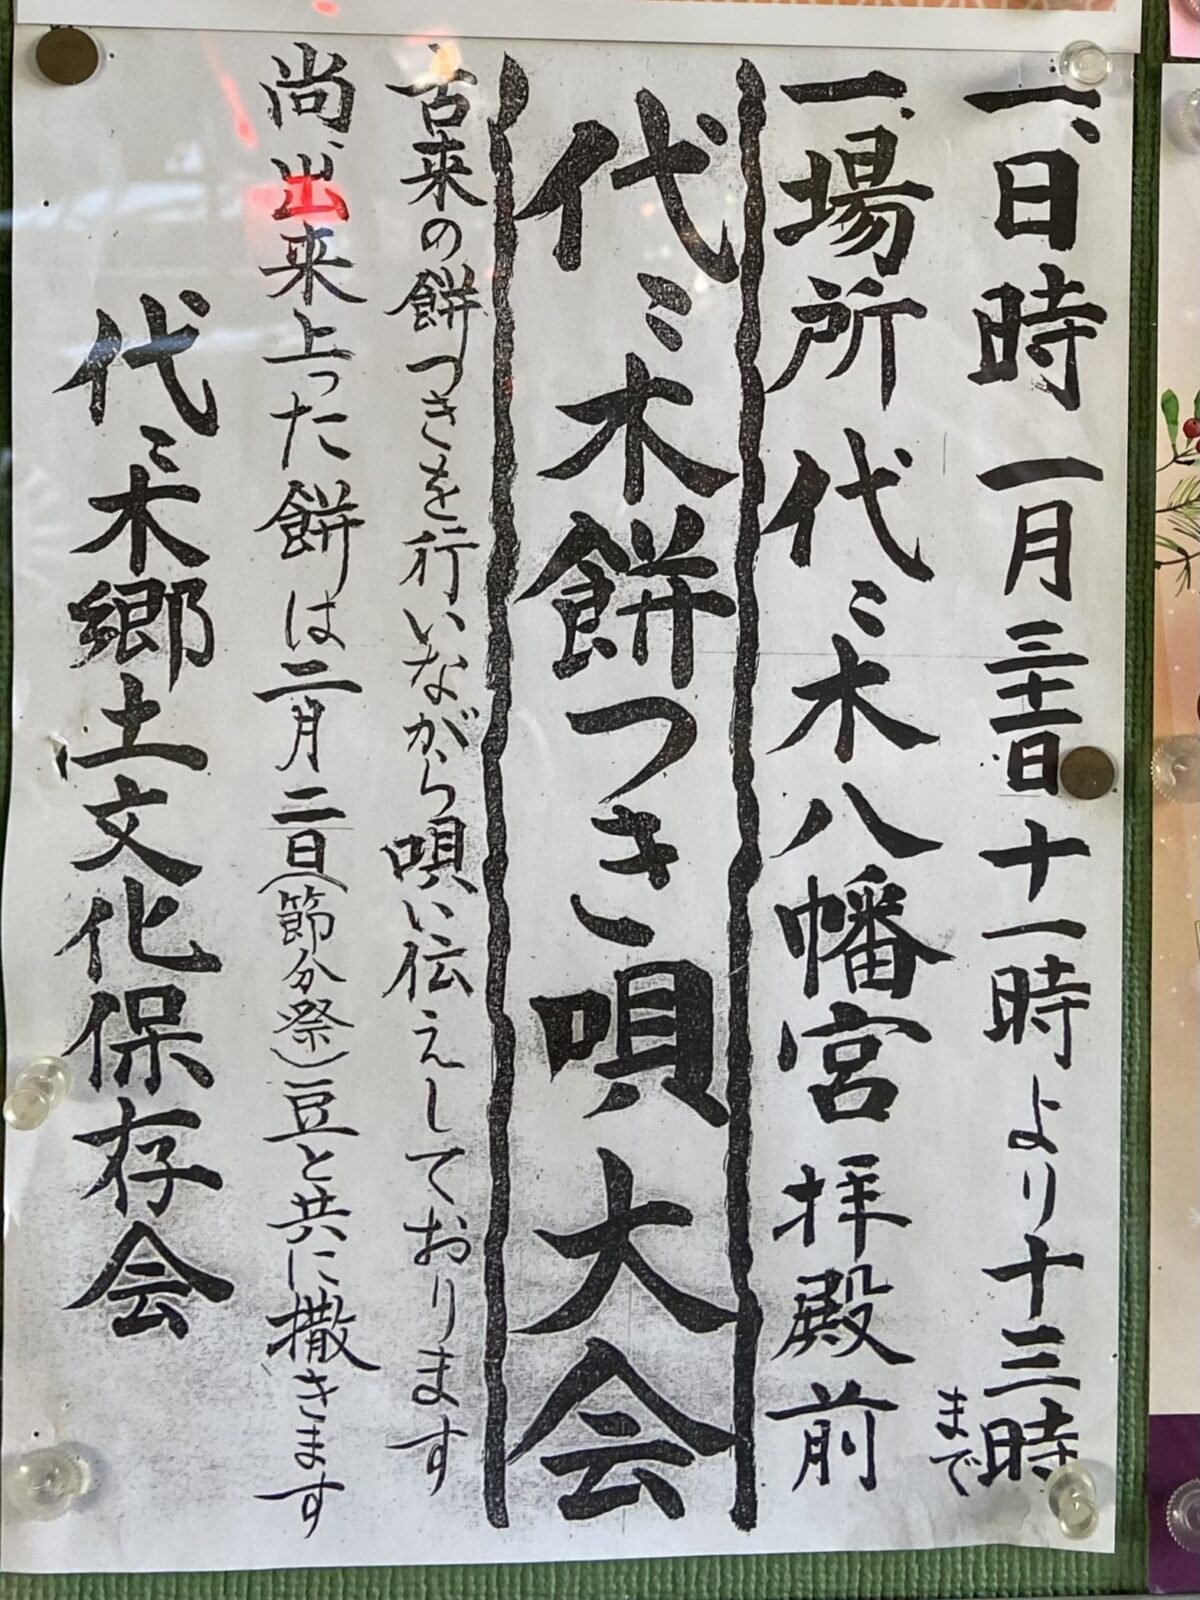 一、日時 一月三十一日十一時より十三時まで
一、場所 代〻木八幡宮 拝殿前
代〻木餅つき唄大会
古来の餅つきを行いながら唄い伝えしております
尚、出来上った餅は二月二日(節分祭)豆と共に撒きます
代〻木郷土文化保存会